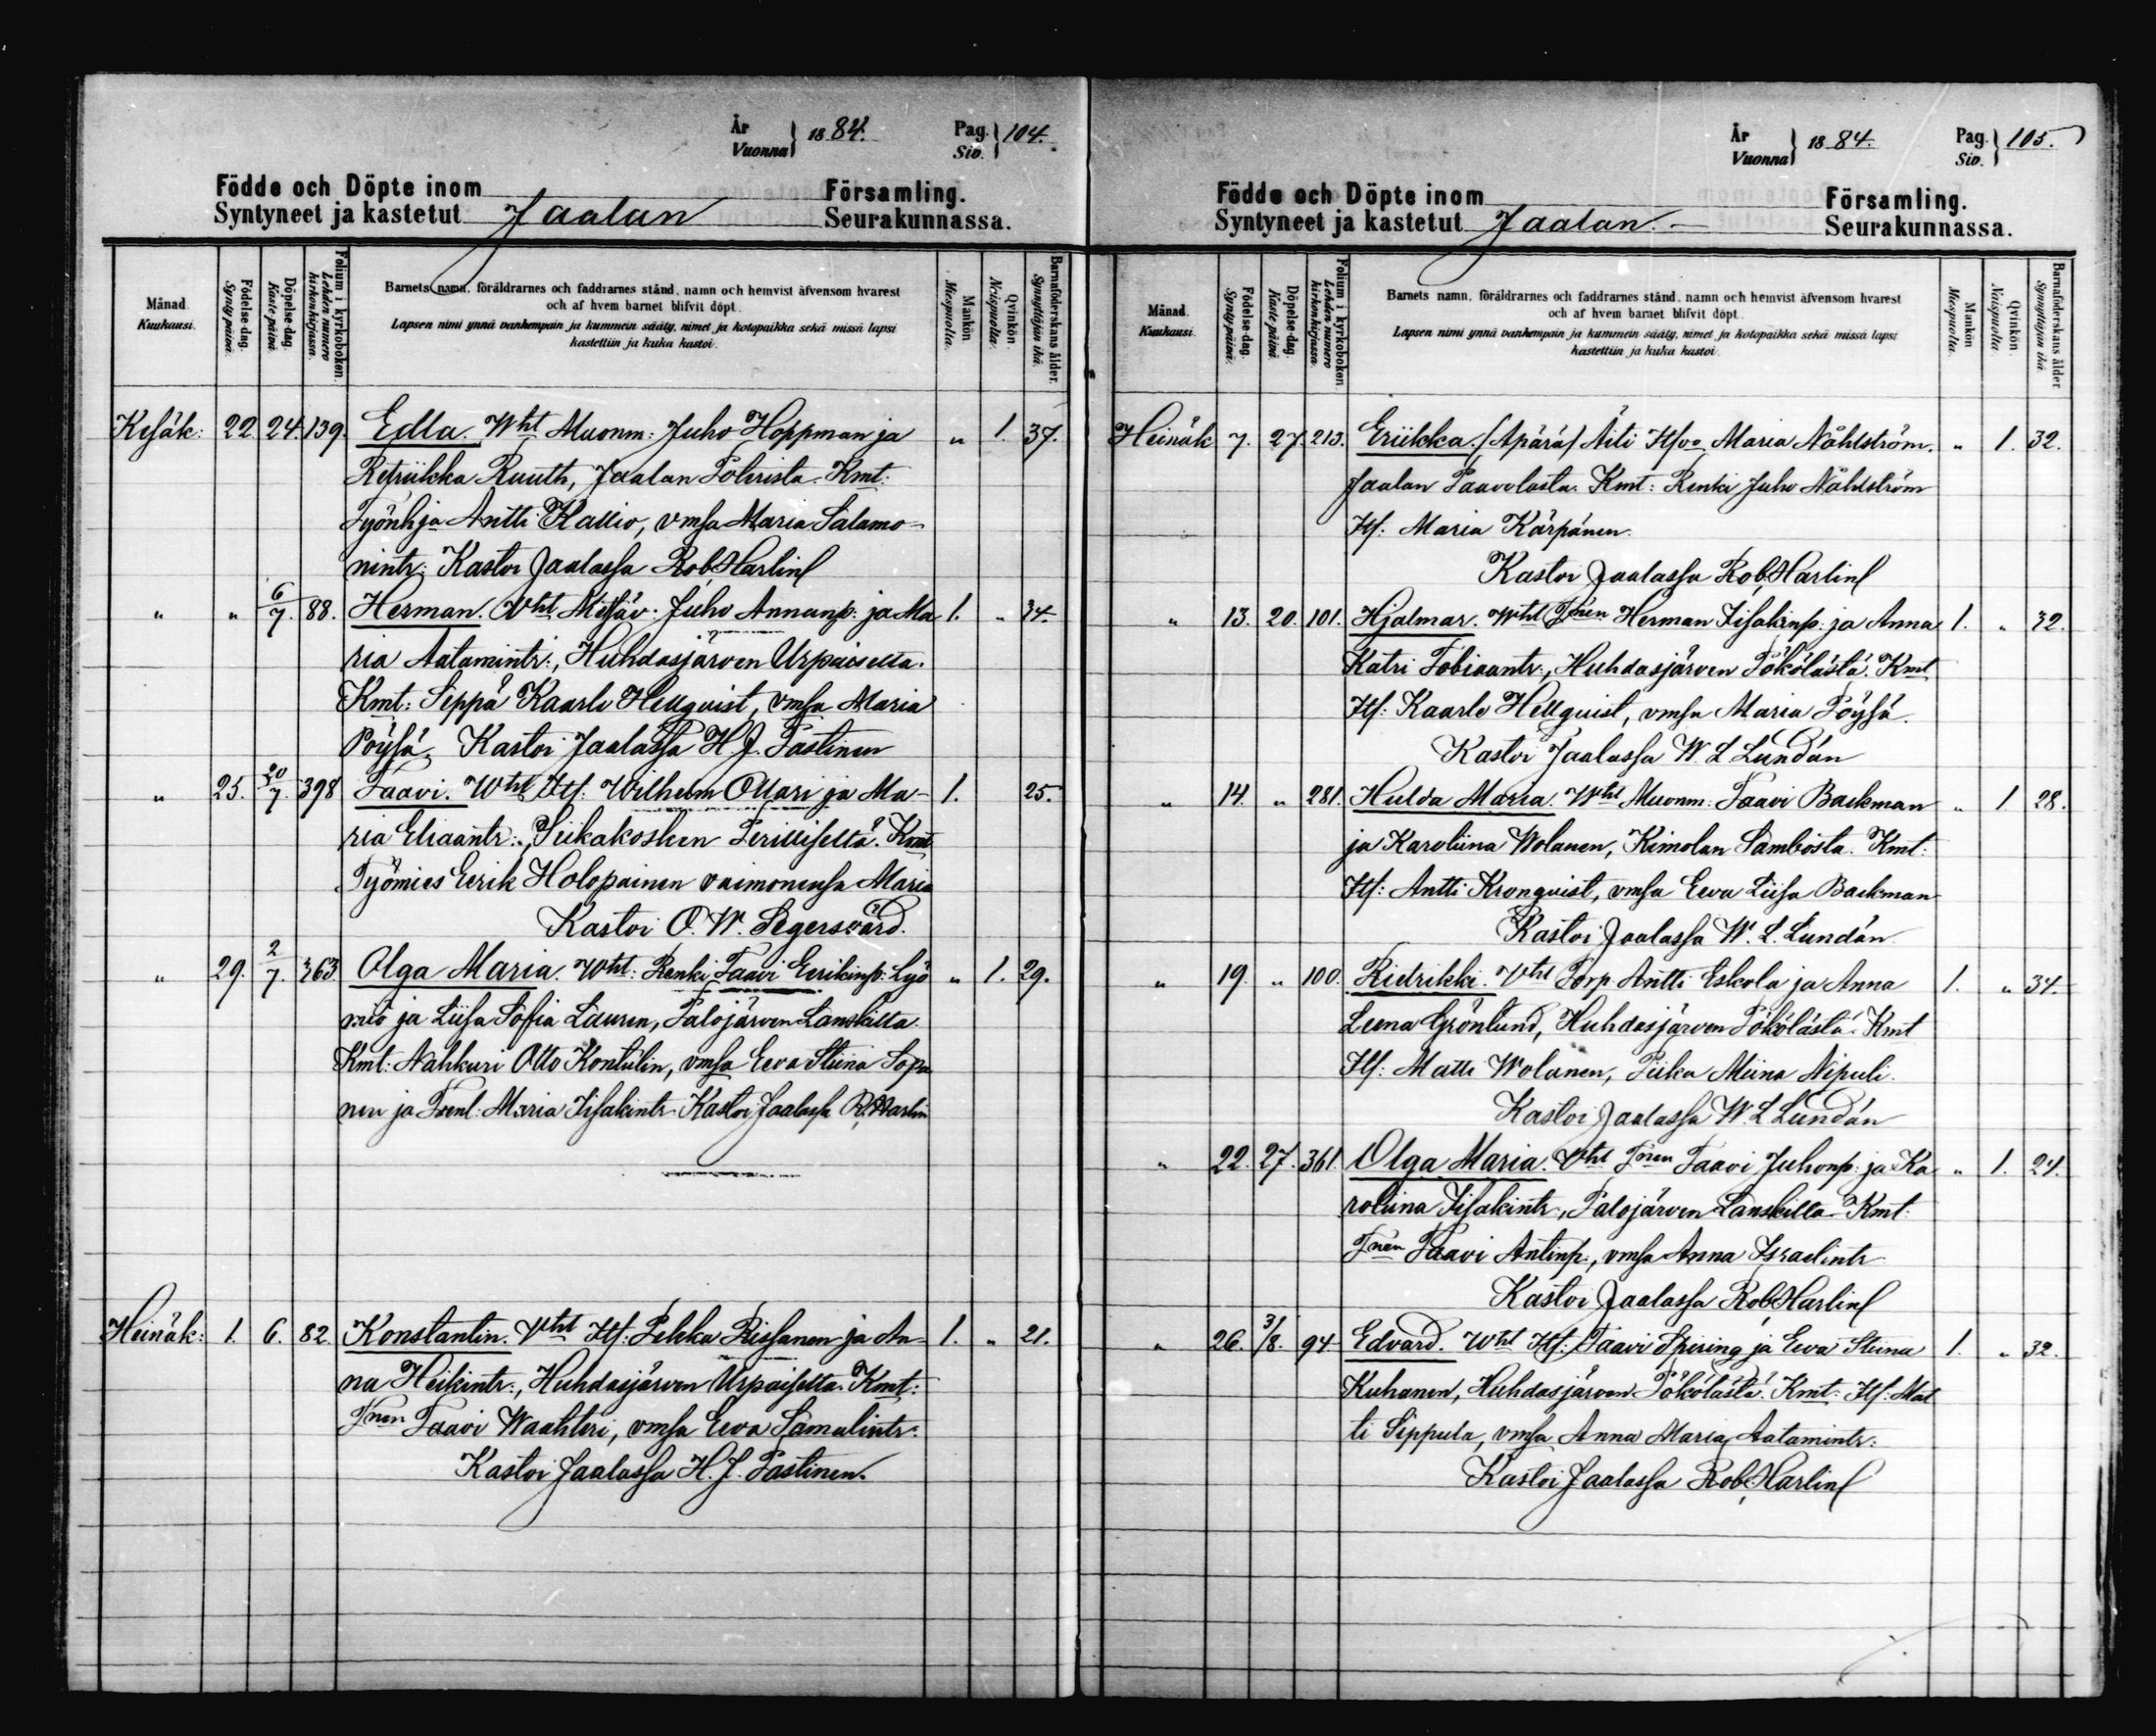 År
Vuonna } 1884. Pag.
Siv. } 104.
Födde och Döpte inom Församling.
Syntyneet ja kastetut Jaalan Seurakunnassa.
Månad. Kuukausi.
Födelse-dag. Synty-päivä.
Döpelse-dag. Kaste-päivä.
Folium i kyrkoboken. Lehden numero kirkonkirjassa.
Barnets namn, föräldrarnes och faddrarnes stånd, namn och hemvist äfvensom hvarest
och af hvem barnet blifvit döpt.
Lapsen nimi ynnä vanhempain ja kummein sääty, nimet ja kotopaikka sekä missä lapsi
kastettiin ja kuka kastoi.
Mankön Miespuolta.
Qvinkön. Naispuolta.
Barnaföderskans ålder. Synnyttäjän ikä.
Kesäk: 22. 24. 139. Edla. Wht Muonm: Juho Hoppman ja „ 1. 37.
Retriikka Ruuth, Jaalan Kmt:
Työnhja Antti Kallio, vmsa Maria Salamo-
nintr: Kastoi Jaalassa Rob. Harlin
„ „ 6/7. 88. Herman. Vht Juho Annanp: ja Ma 1. „ 34.
ria Aatamintr:, Huhdasjärven Urpaisella.
Kmt: Seppä Kaarlo Hellquist, vmsa Maria
Pöysä. Kastoi Jaalassa H. J. Pastinen
„ 25. 20/7. 398 Taavi. Wht Itf: Wilhelm Ollari ja Ma- 1. 25.
ria Eliaantr:, Siikakosken Perilliseltä. Kmt
Työmies Eerik Holopainen vaimonensa Maria
Kastoi O. W. Segersvärd.
„ 29. 2/7. 363 Olga Maria. Wht: Renki Taavi Eerikinp: Lyö „ 1. 29.
ja Liisa Sofia Lauren, Palojärven Lanskilta.
Kmt: Nahkuri Otto Kontulin, vmsa Eeva Stiina Sopa
nen ja Maria Iisakintr. Kastoi Jaalassa R. Harlin
Heinäk: 1. 6. 82. Konstantin. Vht Itf: Pekka Rissanen ja An- 1. „ 21.
na Heikintr:, Huhdasjärven Urpaiselta. Kmt:
Tnen Taavi Waahteri, vmsa Eeva Samulintr:
Kastoi Jaalassa H. J. Pastinen.
År
Vuonna } 1884. Pag.
Siv. } 105.
Födde och Döpte inom Församling.
Syntyneet ja kastetut Jaalan. Seurakunnassa.
Månad. Kuukausi.
Födelse-dag. Synty-päivä.
Döpelse-dag. Kaste-päivä.
Folium i kyrkoboken. Lehden numero kirkonkirjassa.
Barnets namn, föräldrarnes och faddrarnes stånd, namn och hemvist äfvensom hvarest
och af hvem barnet blifvit döpt.
Lapsen nimi ynnä vanhempain ja kummein sääty, nimet ja kotopaikka sekä missä lapsi
kastettiin ja kuka kastoi.
Mankön Miespuolta.
Qvinkön. Naispuolta.
Barnaföderskans ålder. Synnyttäjän ikä.
Heinäk 7. 27. 213. Eriikka. (Äpärä) Äiti Maria Nåhlström. „ 1. 32.
Jaalan Paavolasta. Kmt: Renki Juho Nåhlström
Itf: Maria Kärpänen.
Kastoi Jaalassa Rob. Harlin
„ 13. 20. 101. Hjalmar. Wht Tnen Herman Iisakinp: ja Anna 1. „ 32.
Katri Tobiaantr:, Huhdasjärven Pökölästä. Kmt
Itf: Kaarlo Hellquist, vmsa Maria Pöysä.
Kastoi Jaalassa W. L Lundán
„ 14. „ 281. Hulda Maria. Wht Muonm: Taavi Backman „ 1. 28.
ja Karoliina Wolanen, Kimolan Sambosta. Kmt:
Itf: Antti Kronquist, vmsa Eeva Liisa Backman
Kastoi Jaalassa W. L. Lundán
„ 19. „ 100. Rietrikki. Vht Torp Antti Eskola ja Anna 1. „ 34.
Leena Grönlund, Huhdasjärven Pökölästä. Kmt
Itf: Matti Wolanen, Piika Miina Nipuli.
Kastoi Jaalassa W. L Lundán
„ 22. 27. 361. Olga Maria. Vht Tnen Taavi Juhonp: ja Ka „ 1. 24.
roliina Iisakintr:, Palojärven Lanskilta. Kmt:
Tnen Taavi Antinp:, vmsa Anna Israelintr
Kastoi Jaalassa Rob. Harlin
„ 26. 3/8. 94 Edvard. Wht Itf: Taavi Spiring ja Eeva Stiina 1. „ 32.
Kuhanen, Huhdasjärven Pökölästä. Kmt: Itf: Mat
ti Sippula, vmsa Anna Maria Aatamintr:
Kastoi Jaalassa Rob: Harlin